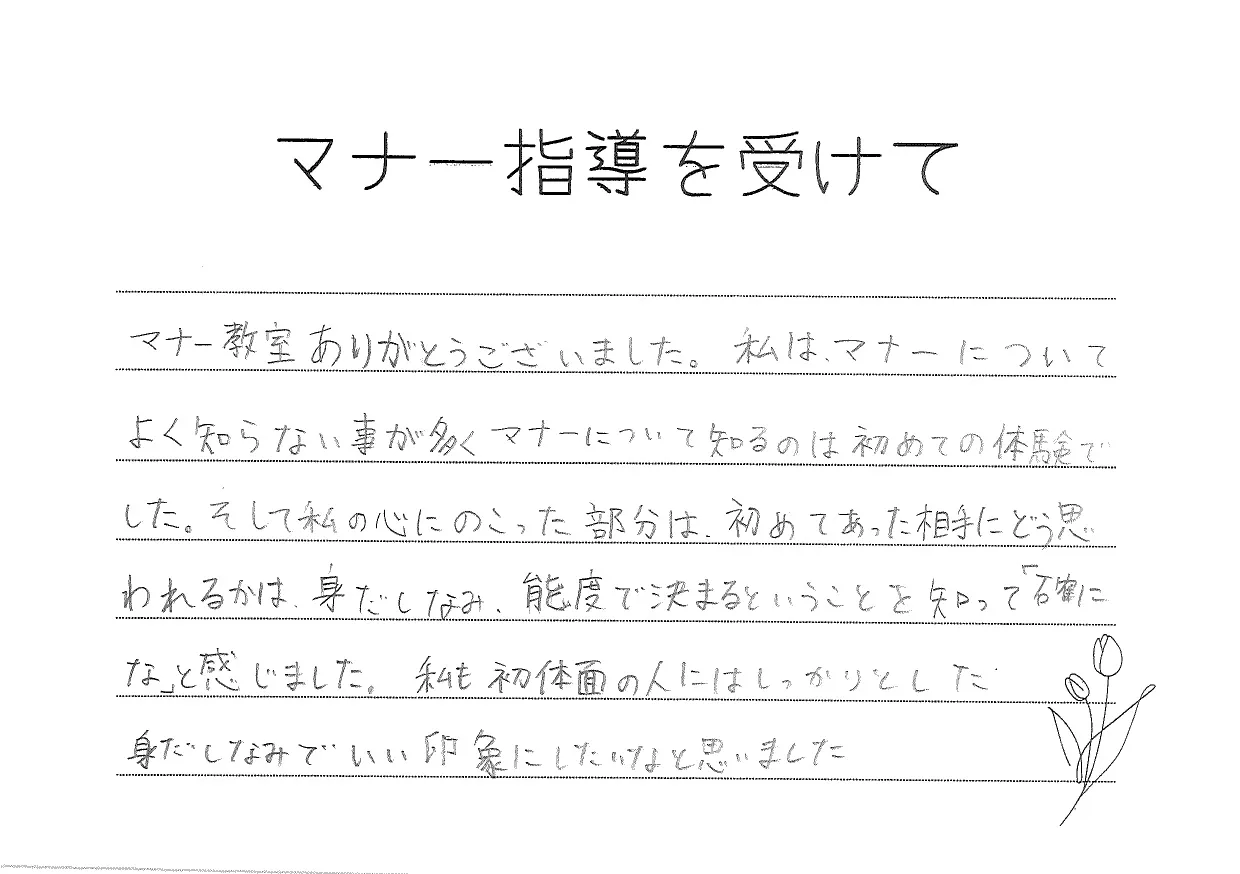 マナー指導を受けて
マナー教室ありがとうございました。私は、マナーについて
よく知らない事が多くマナーについて知るのは初めての体験で
した。そして私の心にのこった部分は、初めてあった相手にどう思
われるかは、身だしなみ、能度で決まるということを知って「確に
な」と感じました。私も初体面の人にはしっかりとした
身だしなみでいい印象にしたいなと思いました